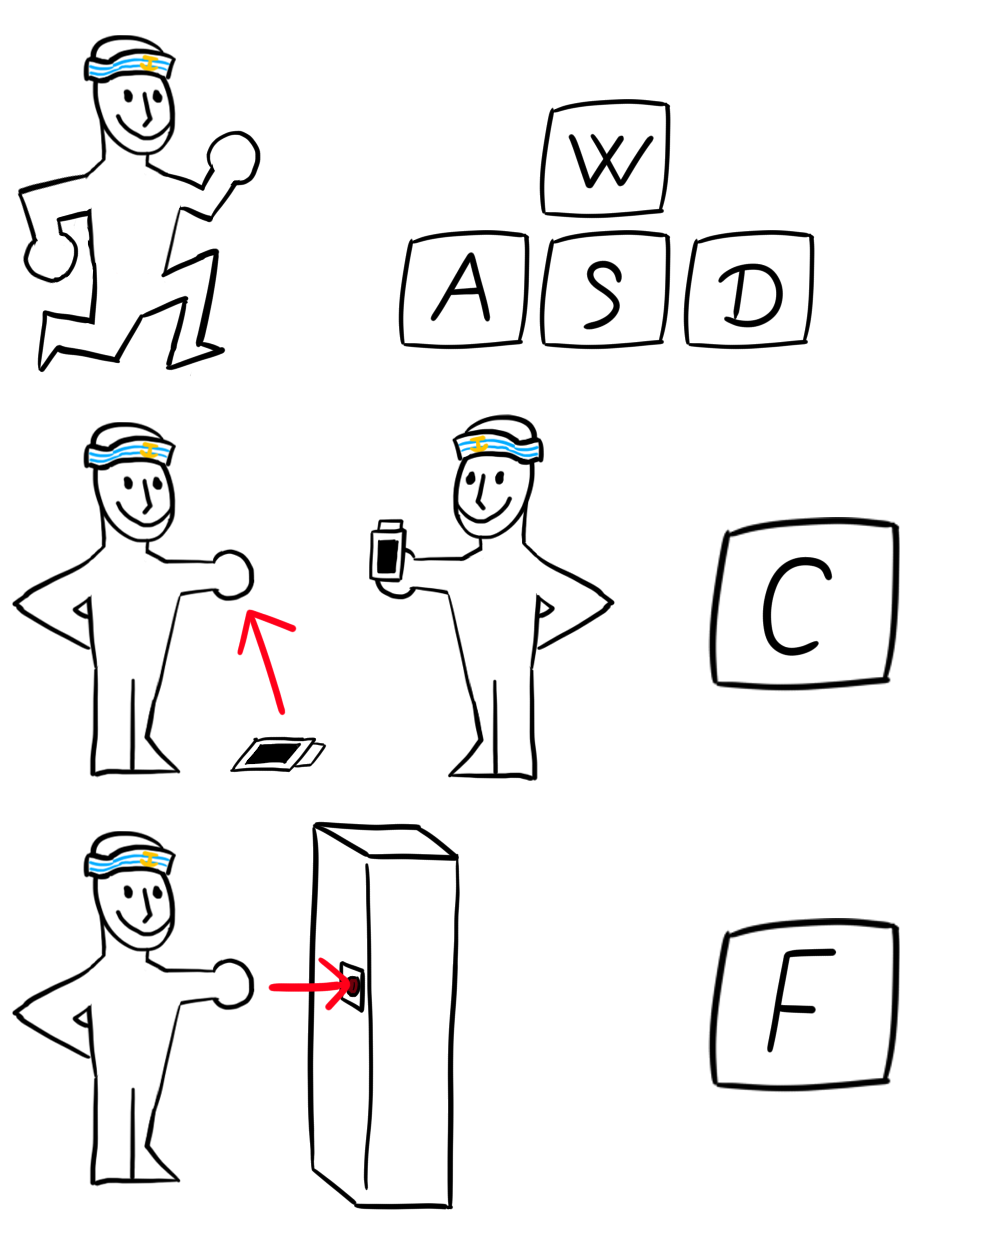 W
A S D
C
F